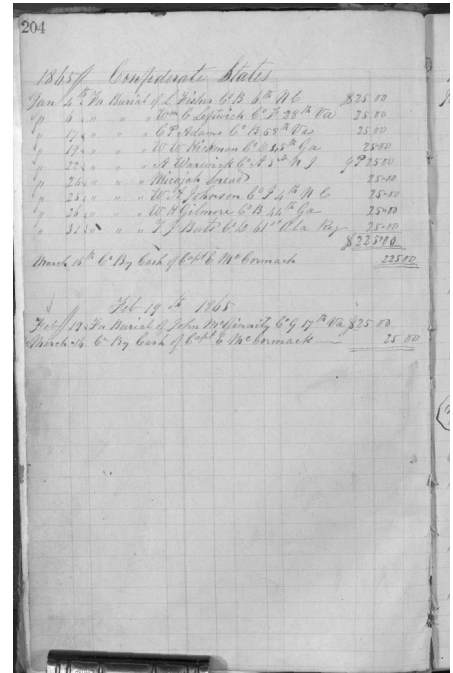 204
1865 // Confederate States
Jan 4th For Burial of L Fisher Co B 6th N C $25.00
" 6 " " " Wm C Leftwich Co F 28th Va 25.00
" 17 " " " C P Adams Co B 58th Va 25.00
" 19 " " " W W Hickman Co 45th Ga 25.00
" 22 " " " A Warwick Co A 3rd N J 25.00
" 24 " " " Micajah Spead 25.00
" 25 " " " W A Johnson Co I 4th N C 25.00
" 26 " " " W H Gilmore Co B 44th Ga 25.00
" 31 " " " F J Bates Co 61st Ala Reg 25.00
$225.00
March 16th Cr By Cash of Capt E McCormack 225.00
Feb 19th 1865
Feb // 19 For Burial of John McGinnity Co G 17th Va $25.00
March 16 Cr By Cash of Capt E McCormack 25.00